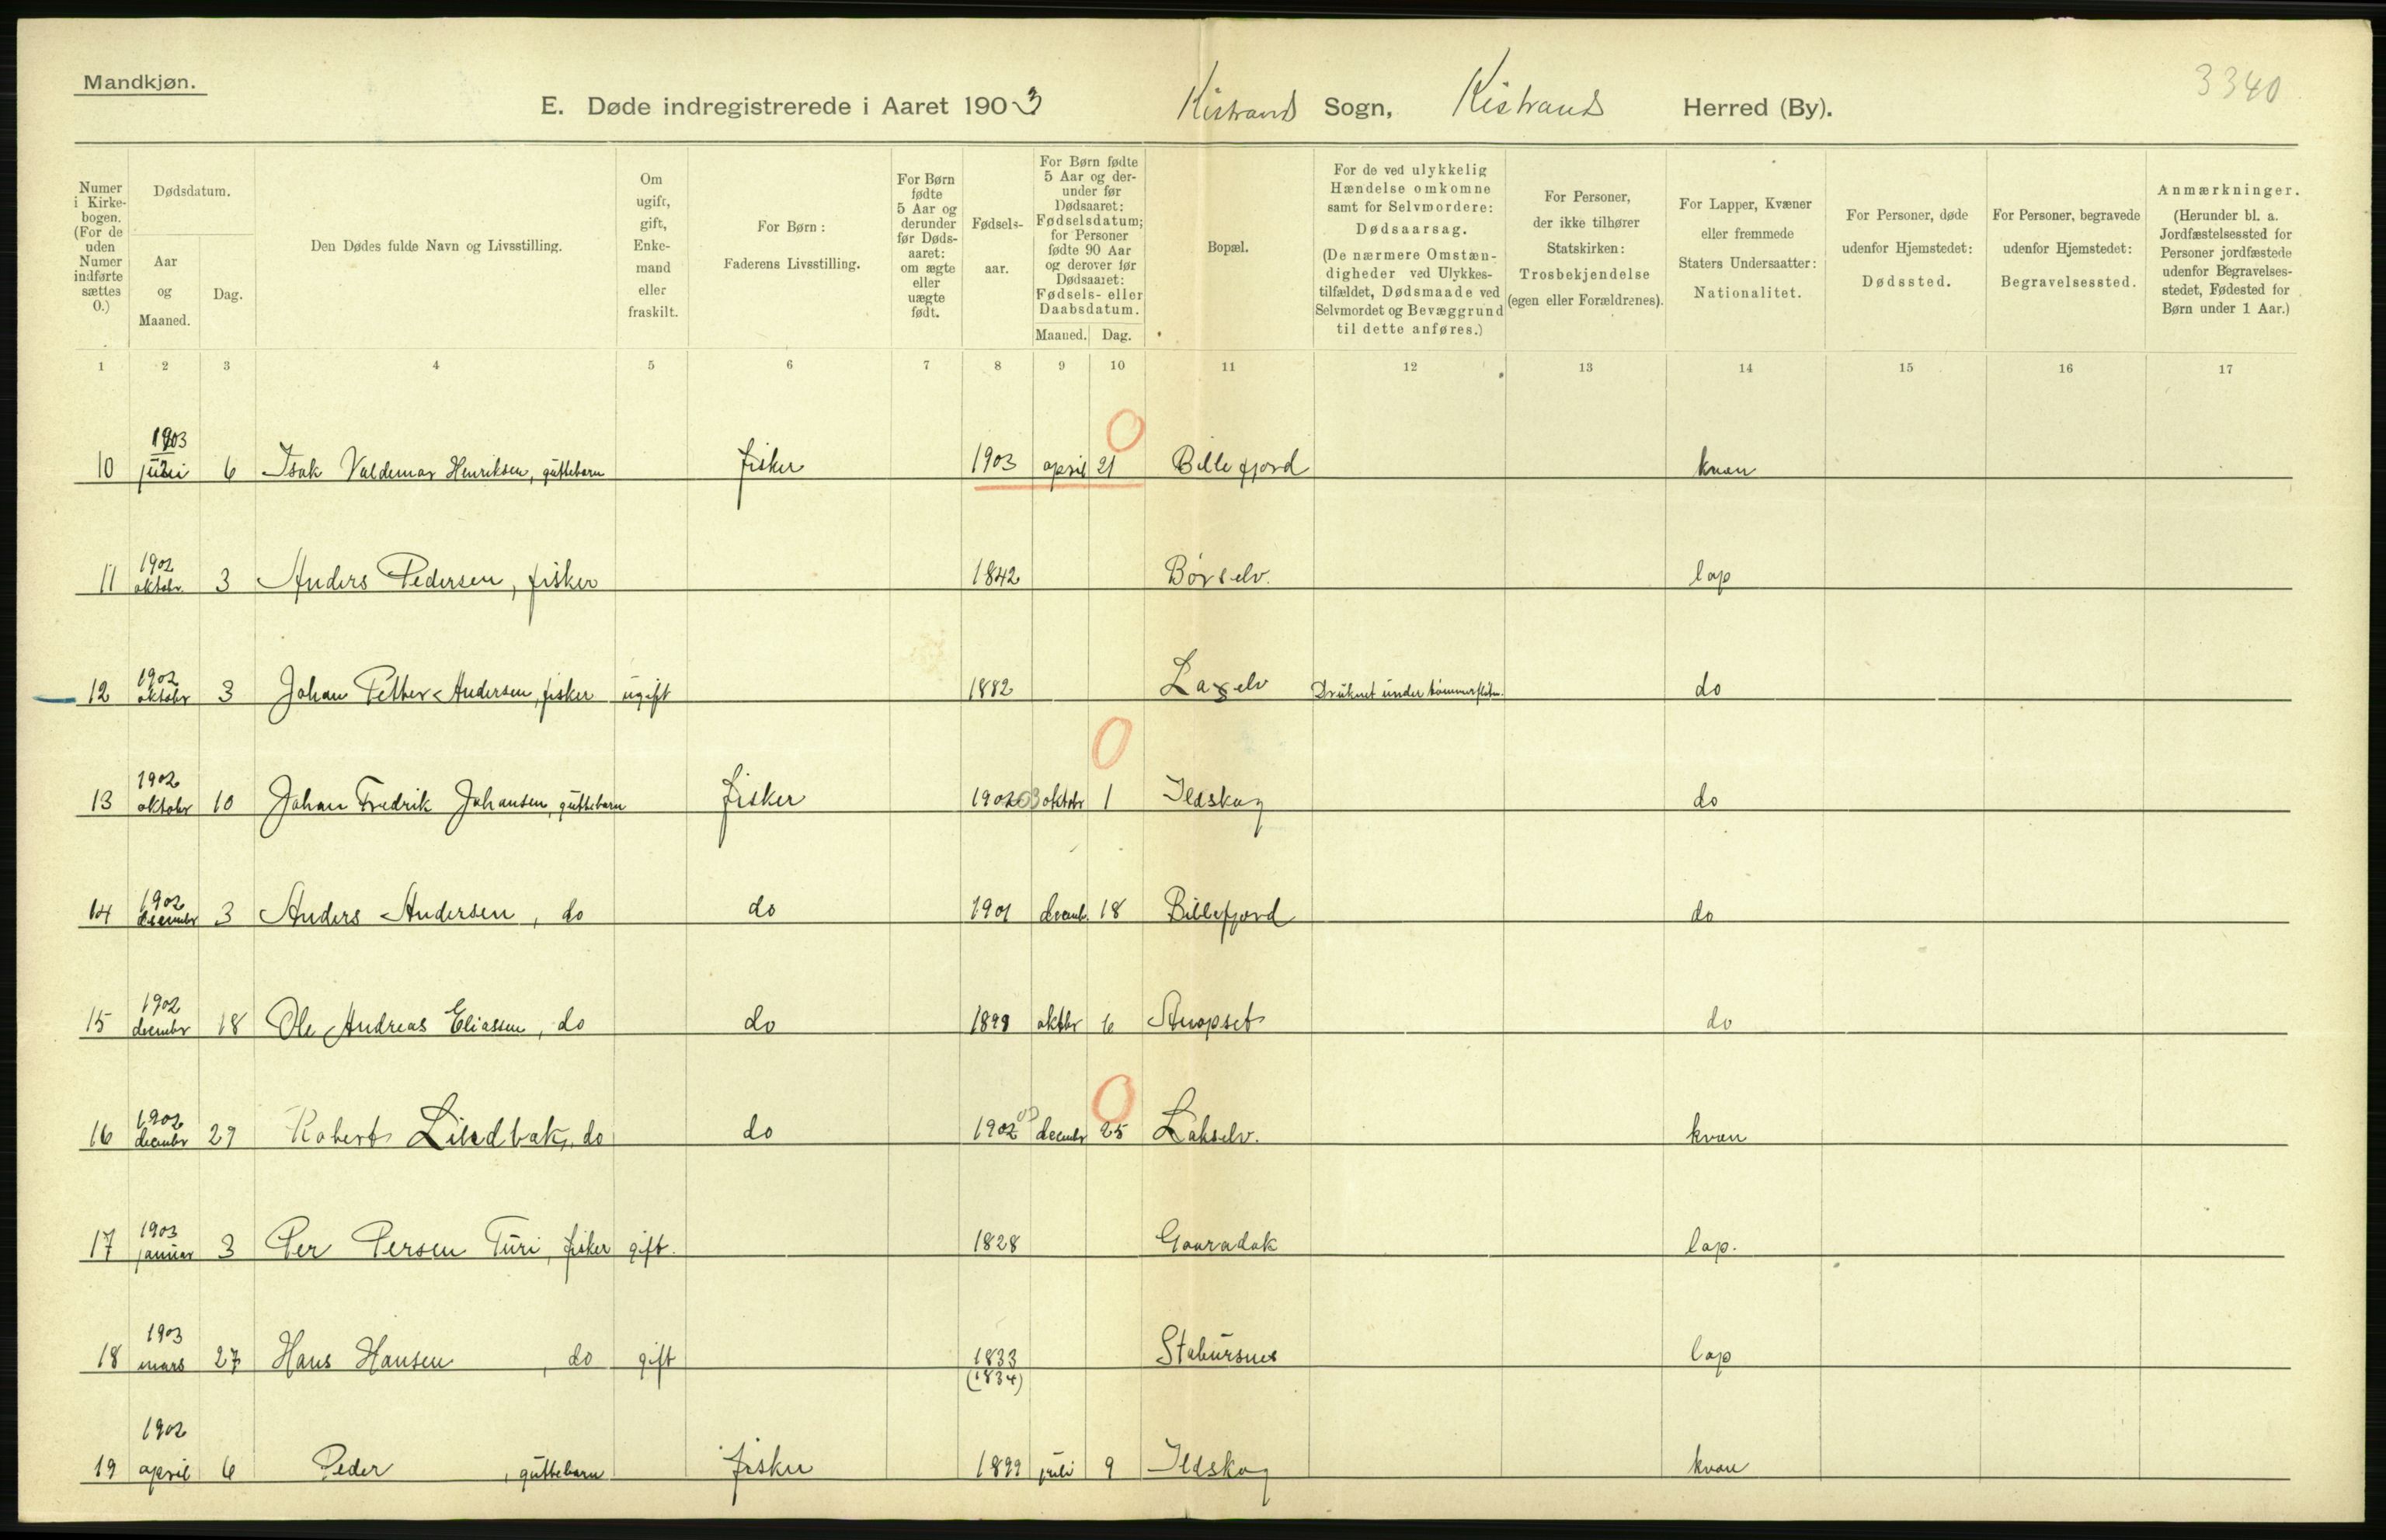 Mandkjøn.
3340
E. Døde indregistrerede i Aaret 1903 Kistrand Sogn, Kistrand Herred (By).
Numer i Kirkebogen. (For de uden Numer indførte sættes 0.)
Dødsdatum.
Aar og Maaned.
Dag.
Den Dødes fulde Navn og Livsstilling.
Om ugift, gift, Enkemand eller fraskilt.
For Børn: Faderens Livsstilling.
For Børn fødte 5 Aar og derunder før Dødsaaret: om ægte eller uægte født.
Fødselsaar.
For Børn fødte 5 Aar og derunder før Dødsaaret: Fødselsdatum; for Personer fødte 90 Aar og derover før Dødsaaret: Fødsels- eller Daabsdatum.
Maaned. Dag.
Bopæl.
For de ved ulykkelig Hændelse omkomne samt for Selvmordere: Dødsaarsag. (De nærmere Omstændigheder ved Ulykkestilfældet, Dødsmaade ved Selvmordet og Bevæggrund til dette anføres.)
For Personer, der ikke tilhører Statskirken: Trosbekjendelse (egen eller Forældrenes).
For Lapper, Kvæner eller fremmede Staters Undersaatter: Nationalitet.
For Personer, døde udenfor Hjemstedet: Dødssted.
For Personer, begravede udenfor Hjemstedet: Begravelsessted.
Anmærkninger. (Herunder bl. a. Jordfæstelsessted for Personer jordfæstede udenfor Begravelsesstedet, Fødested for Børn under 1 Aar.)
1 2 3 4 5 6 7 8 9 10 11 12 13 14 15 16 17
10 1903 juli 6 Isak Valdemar Henriksen, guttebarn fisker 1903 april 21 0 Billefjord kvæn
11 1902 oktobr. 3 Anders Pedersen, fisker 1842 Børselv. lap
12 1902 oktobr 3 Johan Petter Andersen, fisker ugift 1882 Laxelv Druknet under tømmerfløtn. do
13 1902 oktobr 10 Johan Fredrik Johansen, guttebarn fisker 1902 03 oktobr 1 0 Ildskog do
14 1902 decembr 3 Anders Andersen, do do 1901 decemb. 18 Billefjord do
15 1902 decembr 18 Ole Andreas Eliassen, do do 1899 oktbr 6 do
16 1902 decembr 29 Robert Lindbak, do do 1902 03 decembr 25 0 Lakselv. kvæn
17 1903 januar 3 Per Persen Turi, fisker gift. 1828 lap.
18 1903 mars 27 Hans Hansen, do gift 1833 (1834) Stabursnes lap
19 1902 april 6 Peder, guttebarn fisker 1899 juli 9 Ildskog kvæn